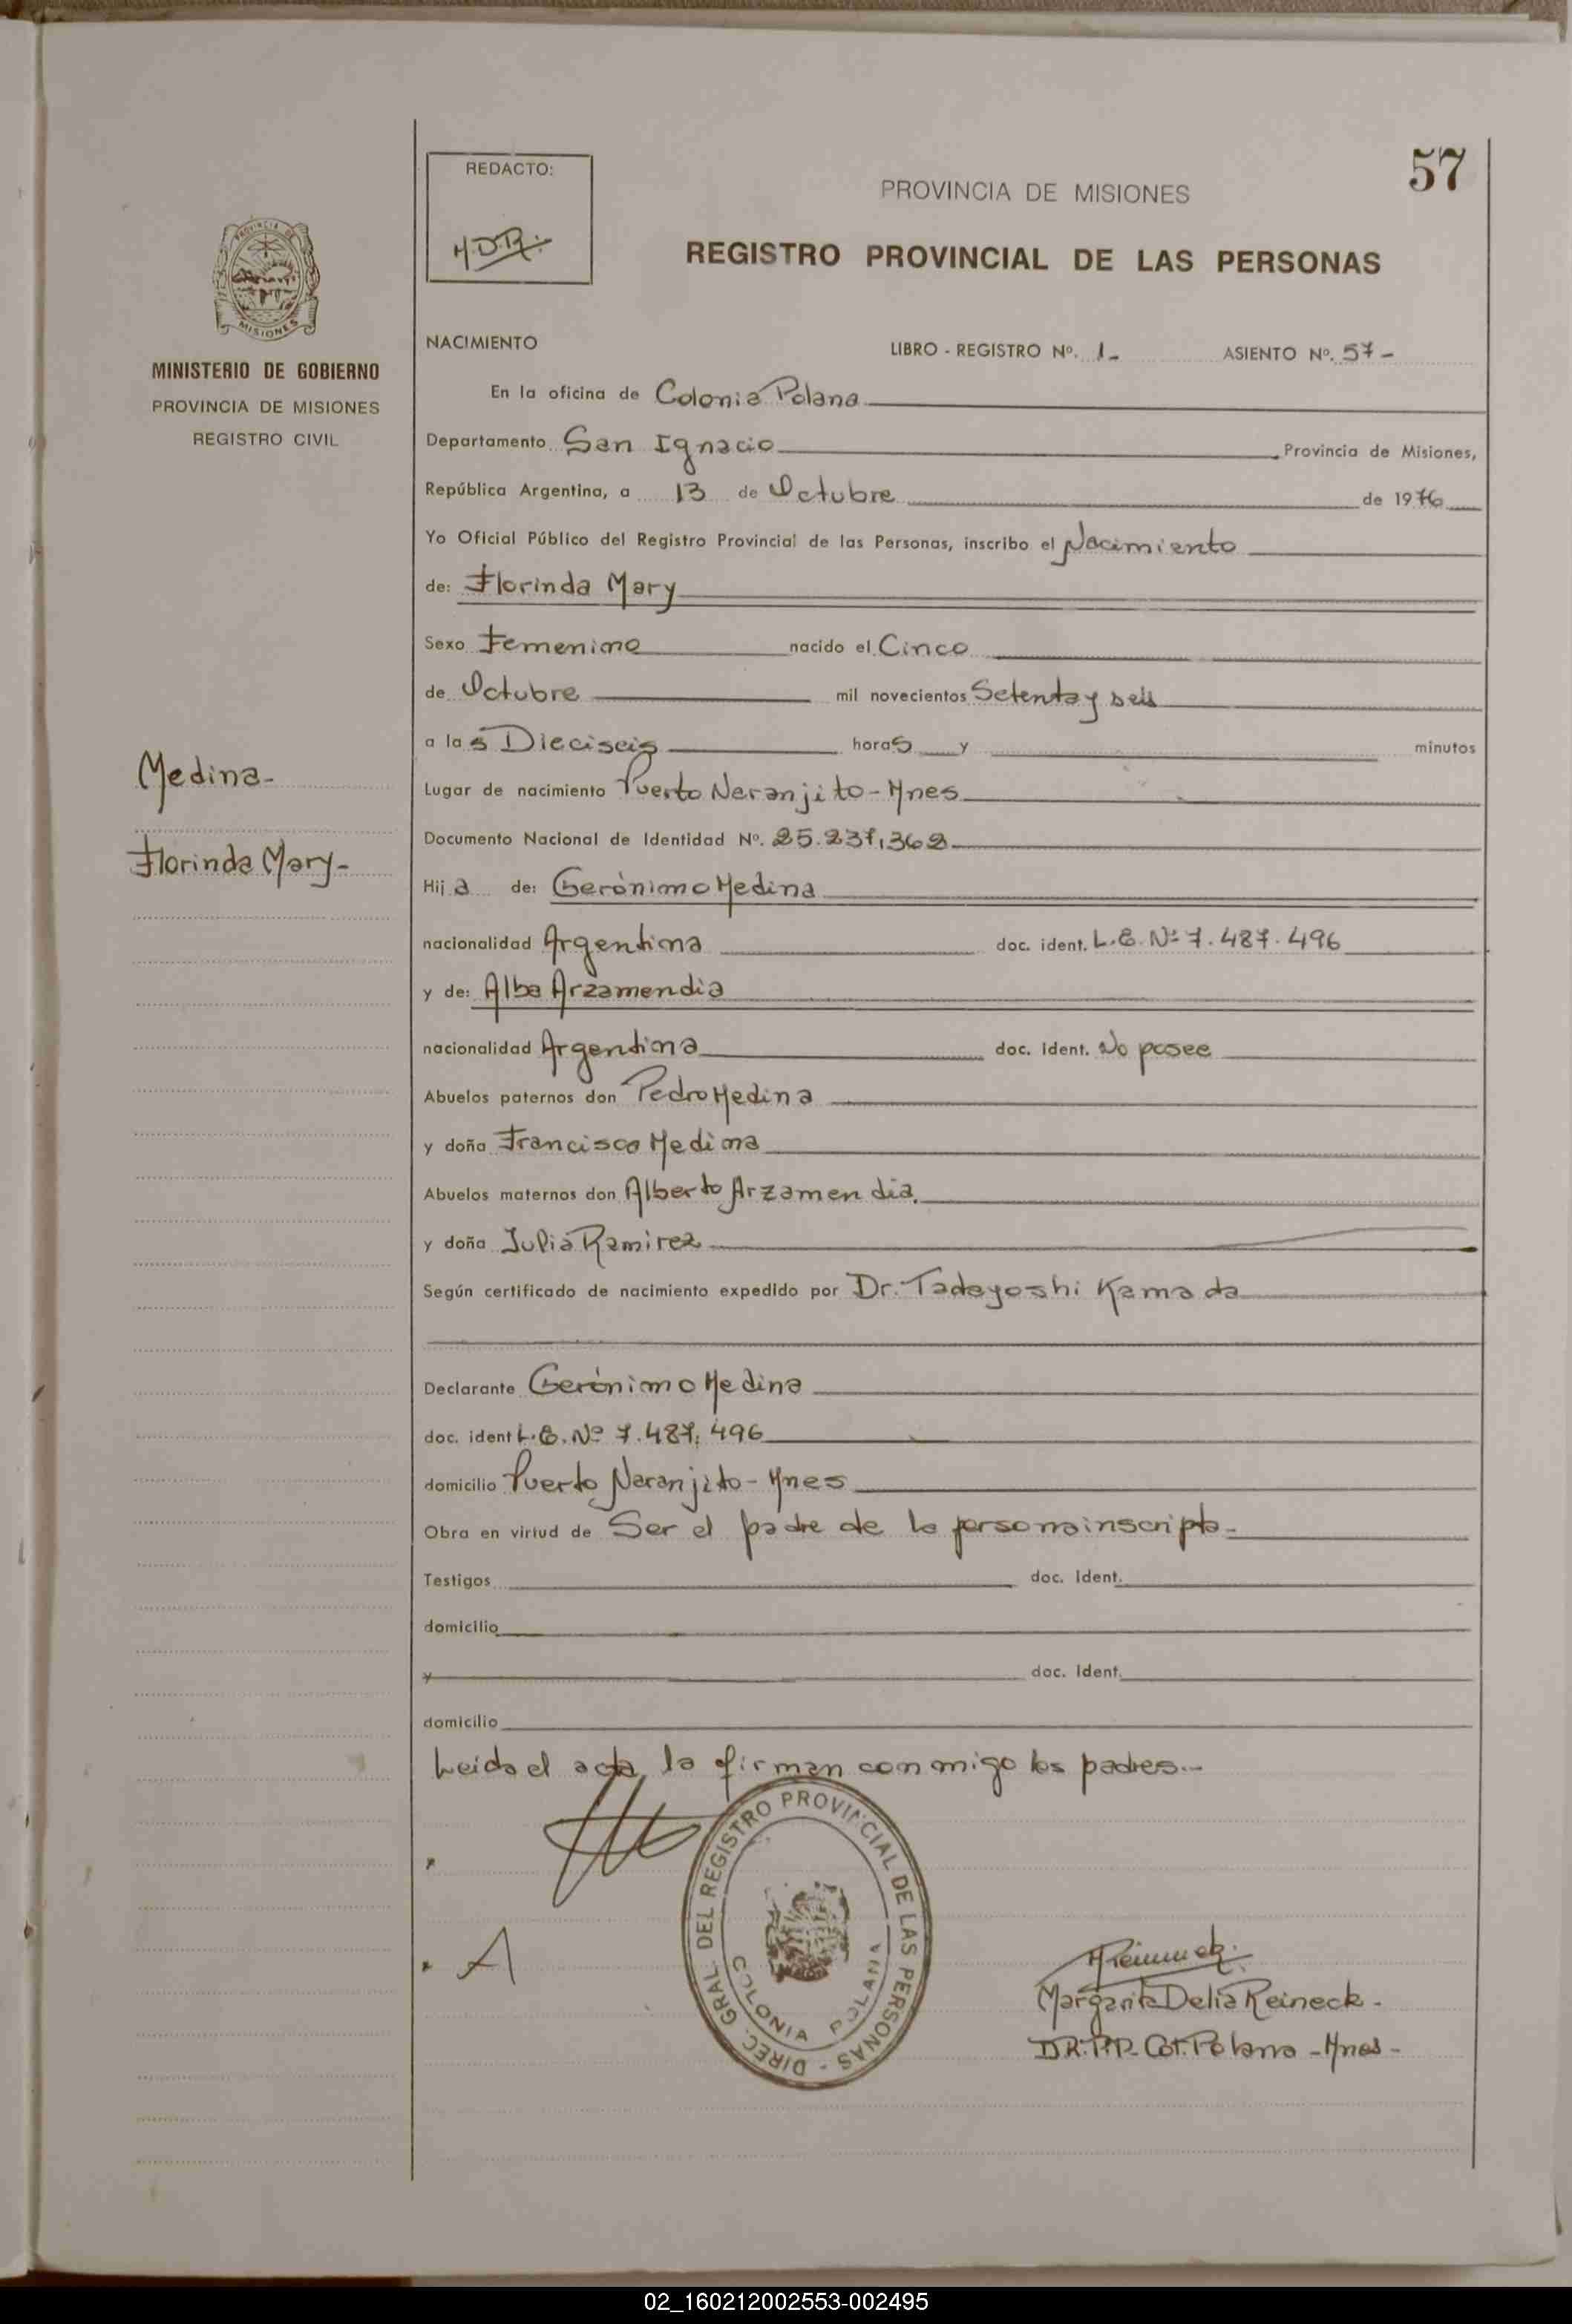 57
REDACTO:
M.D.R.
PROVINCIA DE MISIONES
REGISTRO PROVINCIAL DE LAS PERSONAS
PROVINCIA DE
MISIONES
MINISTERIO DE GOBIERNO
PROVINCIA DE MISIONES
REGISTRO CIVIL
Medina-
Florinda Mary-
NACIMIENTO LIBRO - REGISTRO Nº. 1- ASIENTO Nº. 57-
En la oficina de Colonia Polana
Departamento San Ignacio Provincia de Misiones,
República Argentina, a 13 de Octubre de 1976
Yo Oficial Público del Registro Provincial de las Personas, inscribo el Nacimiento
de: Florinda Mary
Sexo Femenino nacido el Cinco
de Octubre mil novecientos Setenta y seis
a las Dieciseis horas y minutos
Lugar de nacimiento Puerto Naranjito - Mnes
Documento Nacional de Identidad Nº. 25.237.362
Hija de: Gerónimo Medina
nacionalidad Argentina doc. ident. L.E. Nº 7.487.496
y de: Alba Arzamendia
nacionalidad Argentina doc. ident. No posee
Abuelos paternos don Pedro Medina
y doña Francisca Medina
Abuelos maternos don Alberto Arzamendia.
y doña Julia Ramirez
Según certificado de nacimiento expedido por Dr. Tadayoshi Kamada
Declarante Gerónimo Medina
doc. ident L.E. Nº 7.487.496
domicilio Puerto Naranjito - Mnes
Obra en virtud de Ser el padre de la persona inscripta-
Testigos doc. Ident.
domicilio
y doc. Ident.
domicilio
Leida el acta, la firman conmigo los padres.-
DIREC. GRAL. DEL REGISTRO PROVINCIAL DE LAS PERSONAS -
COLONIA POLANA
A
Margarita Delia Reineck-
Col. Polana - Mnes-
02_160212002553-002495